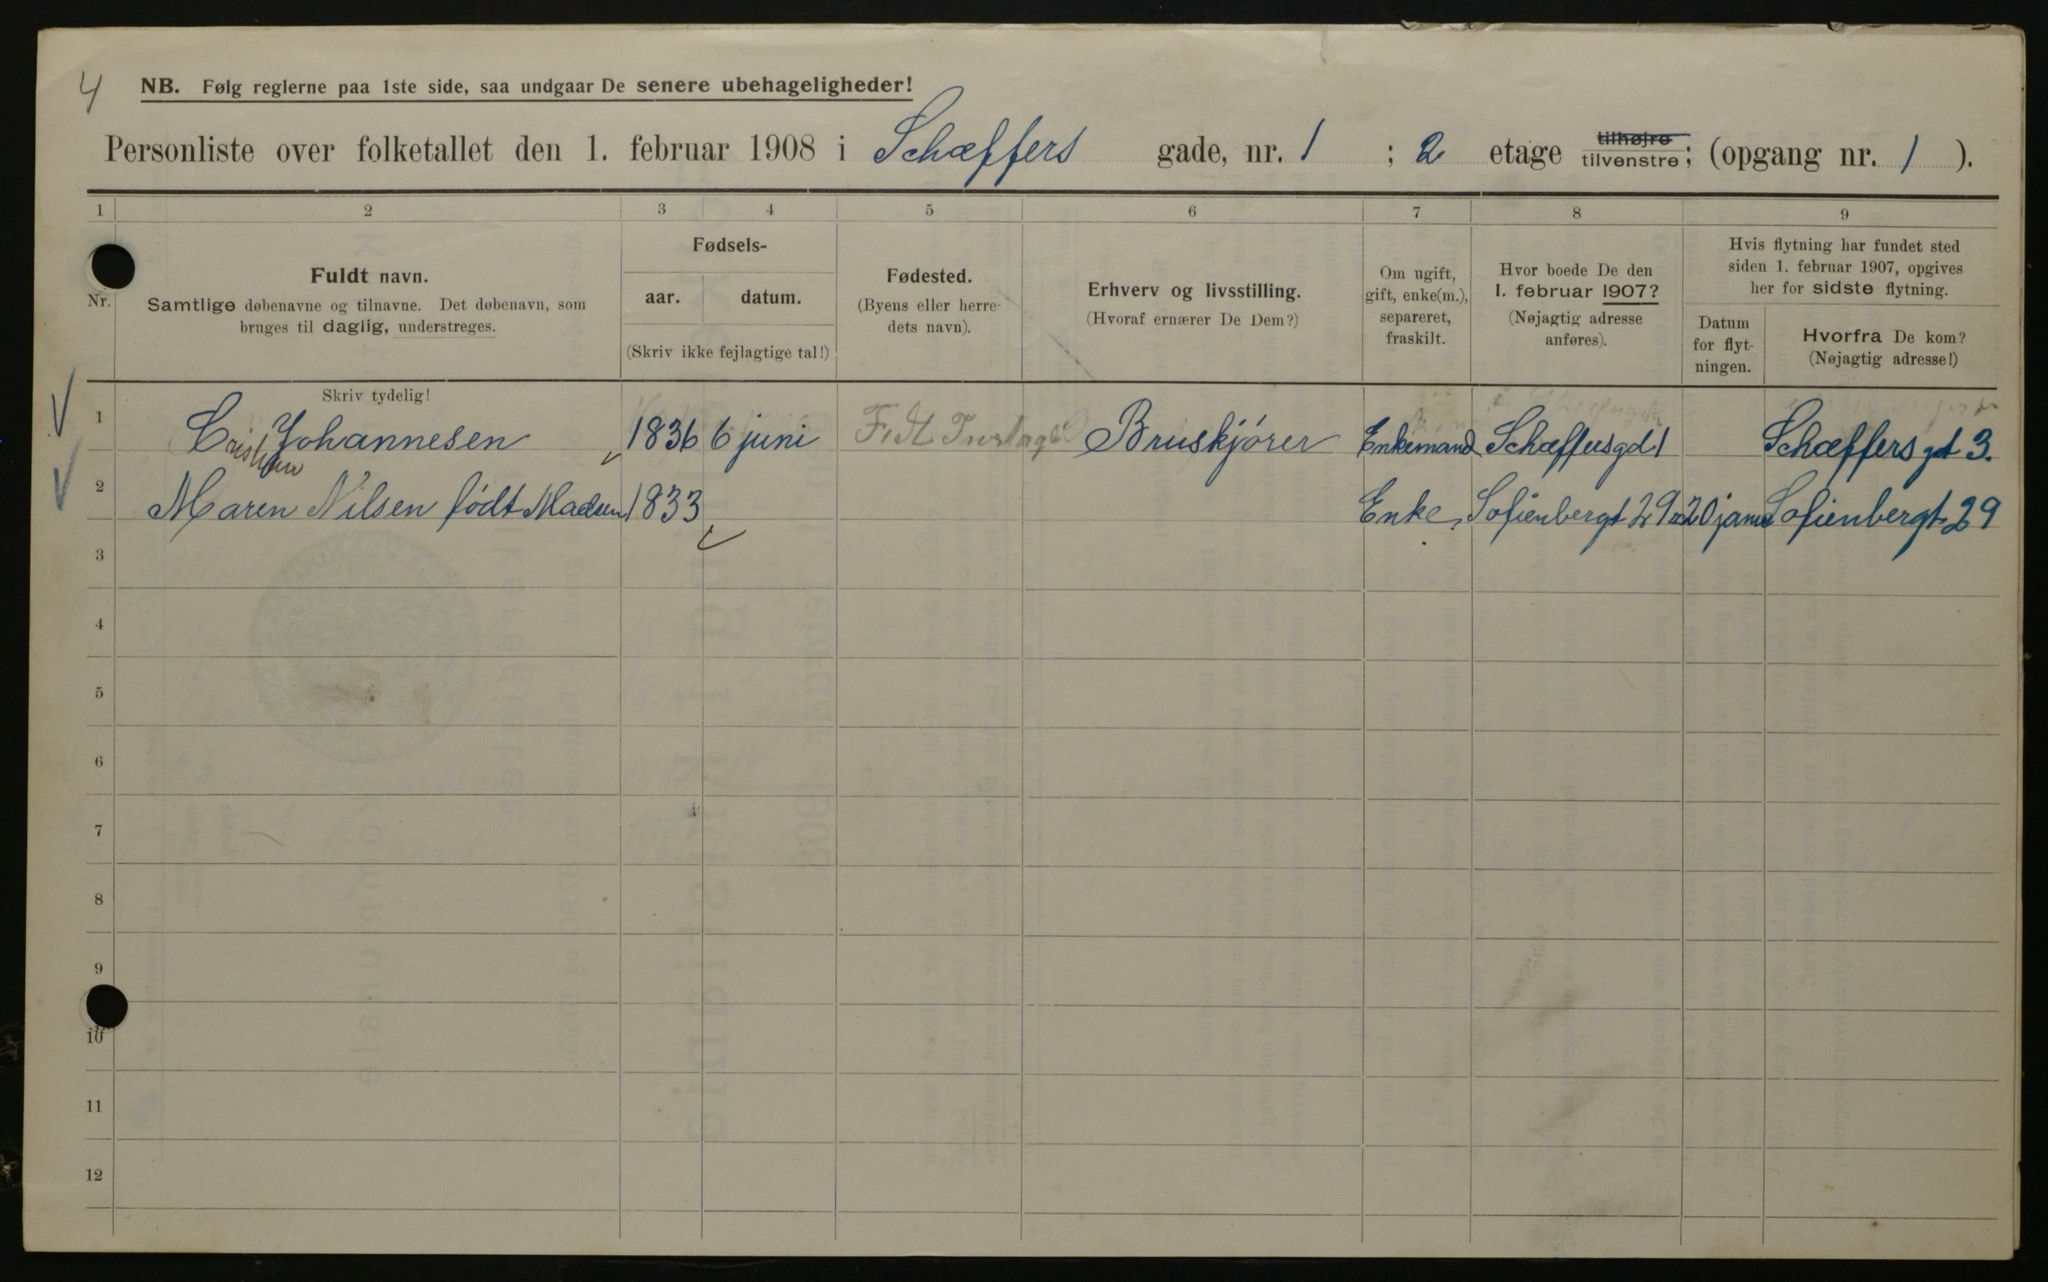 4
NB. Følg reglerne paa 1ste side, saa undgaar De senere ubehageligheder!
Personliste over folketallet den 1. februar 1908 i Schæffers gade, nr. 1 ; 2 etage tilhøjre tilvenstre; (opgang nr. 1 ).
1 2 3 4 5 6 7 8 9
Nr.
Fuldt navn.
Samtlige døbenavne og tilnavne. Det døbenavn, som
bruges til daglig, understreges.
Fødsels-
aar. datum.
(Skriv ikke fejlagtige tal!)
Fødested.
(Byens eller herre-
dets navn).
Erhverv og livsstilling.
(Hvoraf ernærer De Dem?)
Om ugift,
gift, enke(m.),
separeret,
fraskilt.
Hvor boede De den
1. februar 1907?
(Nøjagtig adresse
anføres).
Hvis flytning har fundet sted
siden 1. februar 1907, opgives
her for sidste flytning.
Datum
for flyt-
ningen.
Hvorfra De kom?
(Nøjagtig adresse!)
Skriv tydelig!
1 Cristian Johannesen 1836 6 juni Bruskjører Enkemand Schæffersgd 1 Schæffers gt 3.
2 Maren Nilsen født Madsen 1833 Enke Sofienbergt 29 20 janu Sofienbergt 29
3
4
5
6
7
8
9
10
11
12